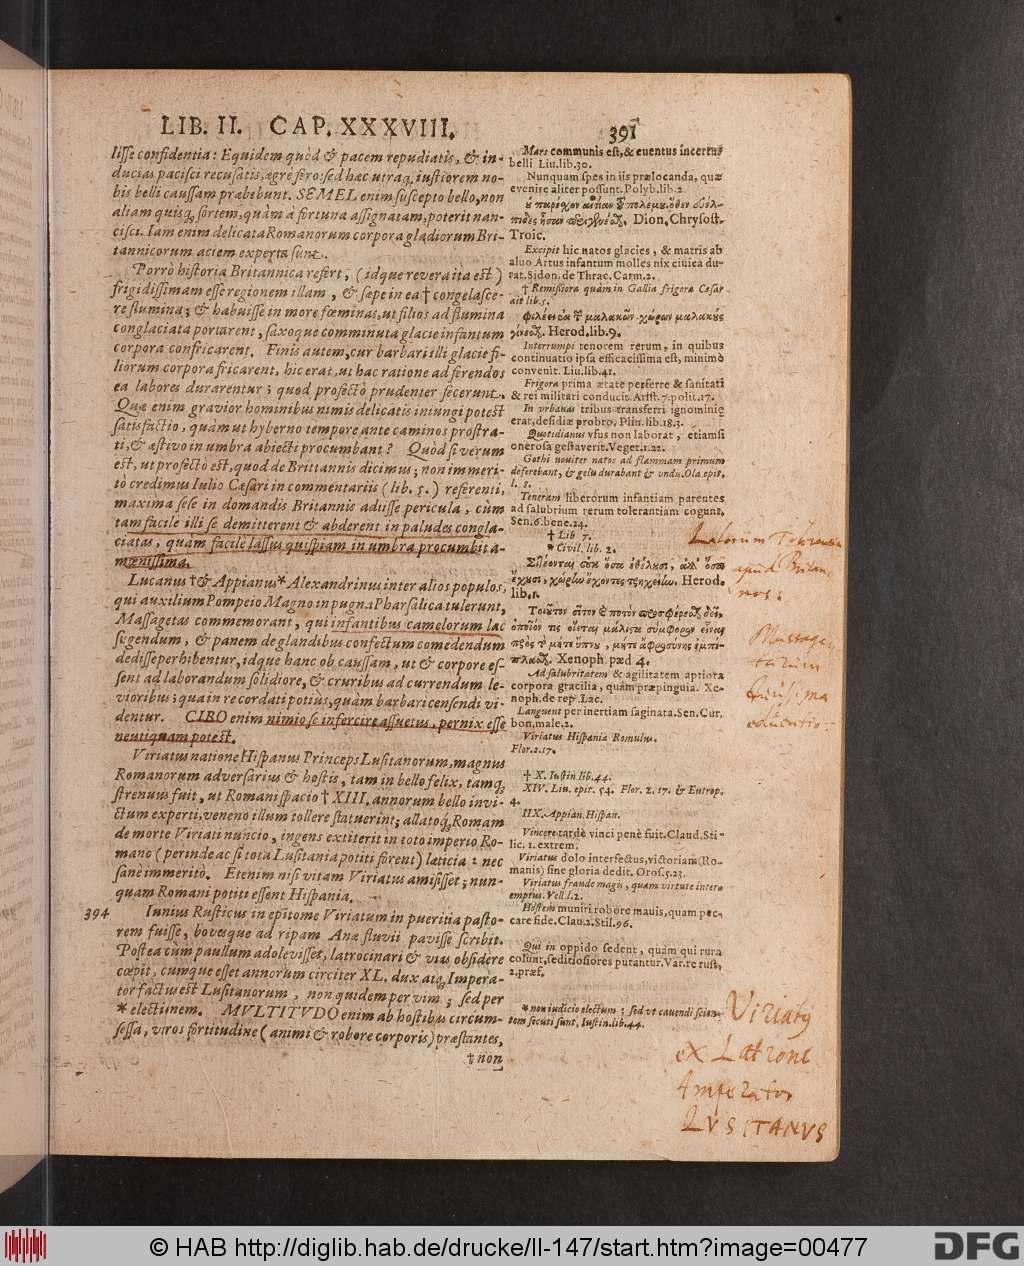 LIB. II. CAP. XXXVIII. 391
lisse confidentia: Equidem quòd & pacem repudiatis, & in-
ducias pacisci recusatis, ægrè fero: sed hæc utraq; iustiorem no-
bis belli caussam præbebunt. SEMEL enim suscepto bello, non
aliam quisq; sortem, quàm à fortuna assignatam, poterit nan-
cisci. Iam enim delicata Romanorum corpora gladiorum Bri-
tannicorum aciem experta sunt.
Porrò historia Britannica refert, (idque revera ità est)
frigidissimam esse regionem illam, & sæpe in ea † congelasce-
re flumina; & habuisse in more fœminas, ut filios ad flumina
conglaciata portarent, saxoque comminuta glacie infantum
corpora confricarent. Finis autem, cur barbari illi glacie fi-
liorum corpora fricarent, hic erat, ut hac ratione ad ferendos
ea labores durarentur; quod profectò prudenter fecerunt.
Quæ enim gravior hominibus nimis delicatis iniungi potest
satisfactio, quàm ut hyberno tempore ante caminos prostra-
ti, & æstivo in umbra abiecti procumbant? Quòd si verum
est, ut profectò est, quod de Brittannis dicimus; non immeri-
tò credimus Iulio Cæsari in commentariis (lib. 5.) referenti,
maxima sese in domandis Britannis adiisse pericula, cùm
tam facilè illi se demitterent & abderent in paludes congla-
ciatas, quàm facilè lassus quispiam in umbra procumbit a-
mœnissima.
Lucanus † & Appianus * Alexandrinus inter alios populos,
qui auxilium Pompeio Magno in pugna Pharsalica tulerunt,
Massagetas commemorant, qui infantibus camelorum lac
sugendum, & panem de glandibus confectum comedendum
dedisse perhibentur, idque hanc ob caussam, ut & corpore es-
sent ad laborandum solidiore, & cruribus ad currendum le-
vioribus; qua in re cordati potiùs, quàm barbari censendi vi-
dentur. CIBO enim nimio se infercire assuetus, pernix esse
neutiquam potest.
Viriatus natione Hispanus Princeps Lusitanorum, magnus
Romanorum adversarius & hostis, tam in bello felix, tamq;
strenuus fuit, ut Romani spacio † XIII. annorum bello invi-
ctum experti, veneno illum tollere statuerint; allatoq; Romam
de morte Viriati nuncio, ingens extiterit in toto imperio Ro-
mano (perinde ac si tota Lusitania potiti forent) læticia: nec
sanè immeritò. Etenim nisi vitam Viriatus amisisset; nun-
quam Romani potiti essent Hispania.
394 Iunius Rusticus in epitome Viriatum in pueritia pasto-
rem fuisse, bovesque ad ripam Anæ fluvii pavisse scribit.
Postea cum paullum adolevisset, latrocinari & vias obsidere
cœpit, cumque esset annorum circiter XL. dux atq; Impera-
tor factus est Lusitanorum, non quidem per vim; sed per
* electiinem. MVLTITVDO enim ab hostibus circum-
sessa, viros fortitudine (animi & robore corporis) præstantes,
‡ non
Mars communis est, & euentus incertus
belli Liu. lib. 30.
Nunquam spes in iis prælocanda, quæ
evenire aliter possunt. Polyb. lib. 2
Dion. Chrysost.
Troic.
Excipit hic natos glacies, & matris ab
aluo Artus infantum molles nix ciuica du-
rat. Sidon. de Thrac. Carm. 2.
† Remissiora quàm in Gallia frigora Cæsar
ait lib. 5.
Herod. lib. 9.
Interrumpi tenorem rerum, in quibus
continuatio ipsa efficacissima est, minimè
convenit. Liu. lib. 41.
Frigora prima ætate perferre & sanitati
& rei militari conducit. Arist. 7. polit. 17.
In vrbanas tribus transferri ignominiæ
erat, desidiæ probro. Plin. lib. 18.3.
Quotidianus vsus non laborat, etiamsi
onerosa gestaverit. Veget. 1.22.
Gothi noviter natos ad flammam primum
deferebant, & gelu durabant & vndu. Ola. epit.
l. 5.
Teneram liberorum infantiam parentes
ad salubrium rerum tolerantiam cogunt,
Sen. 6. bene. 24.
† Lib 7.
* Civil. lib. 2.
Herod.
lib. 1.
Xenoph. pæd 4.
Ad salubritatem & agilitatem aptiora
corpora gracilia, quàm præpinguia. Xe-
noph. de rep. Lac.
Languent per inertiam saginata. Sen. Cur.
bon. male. 2.
Viriatus Hispaniæ Romulus.
Flor. 2. 17.
† X. Iustin lib. 44.
XIV. Liu. epit. 54. Flor. 2. 17. & Eutrop.
4.
IIX. Appian. Hispan.
Vincere tardè vinci penè fuit. Claud. Sti-
lic. 1. extrem.
Viriatus dolo interfectus, victoriam (Ro-
manis) sine gloria dedit. Oros. 5. 23.
Viriatus fraude magis, quam virtute intere
emptus. Vell. l. 2.
Hostem muniri robore mauis, quam pec-
care fide. Clau. 2. Stil. 96.
Qui in oppido sedent, quàm qui rura
colunt, seditiosiores putantur. Var. re rust,
2. præf.
* non iudicio electum; sed vt cauendi scien-
tem secuti sunt, Iustin. lib. 44.
apud Britan-
nos:
Massage
tarum
durissima
educatio:
Viriatus
ex Latrone
Imperator
LVSITANVS
© HAB http://diglib.hab.de/drucke/ll-147/start.htm?image=00477
DFG